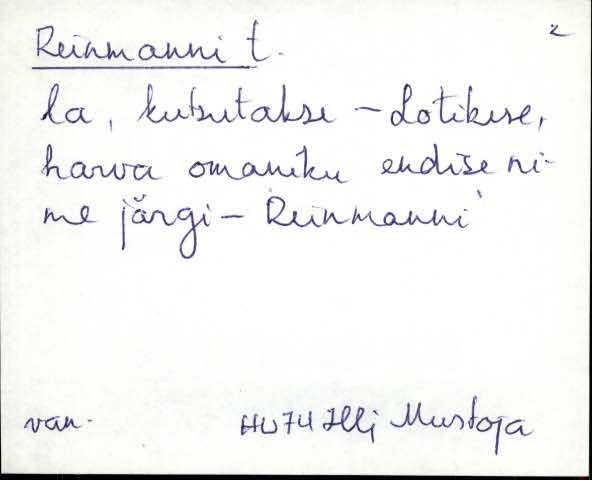 2
Reinmanni t.
la, kutsutakse - Lotikese,
harva omaniku endise ni-
me järgi - Reinmanni
van. HU74 Illj Mustoja